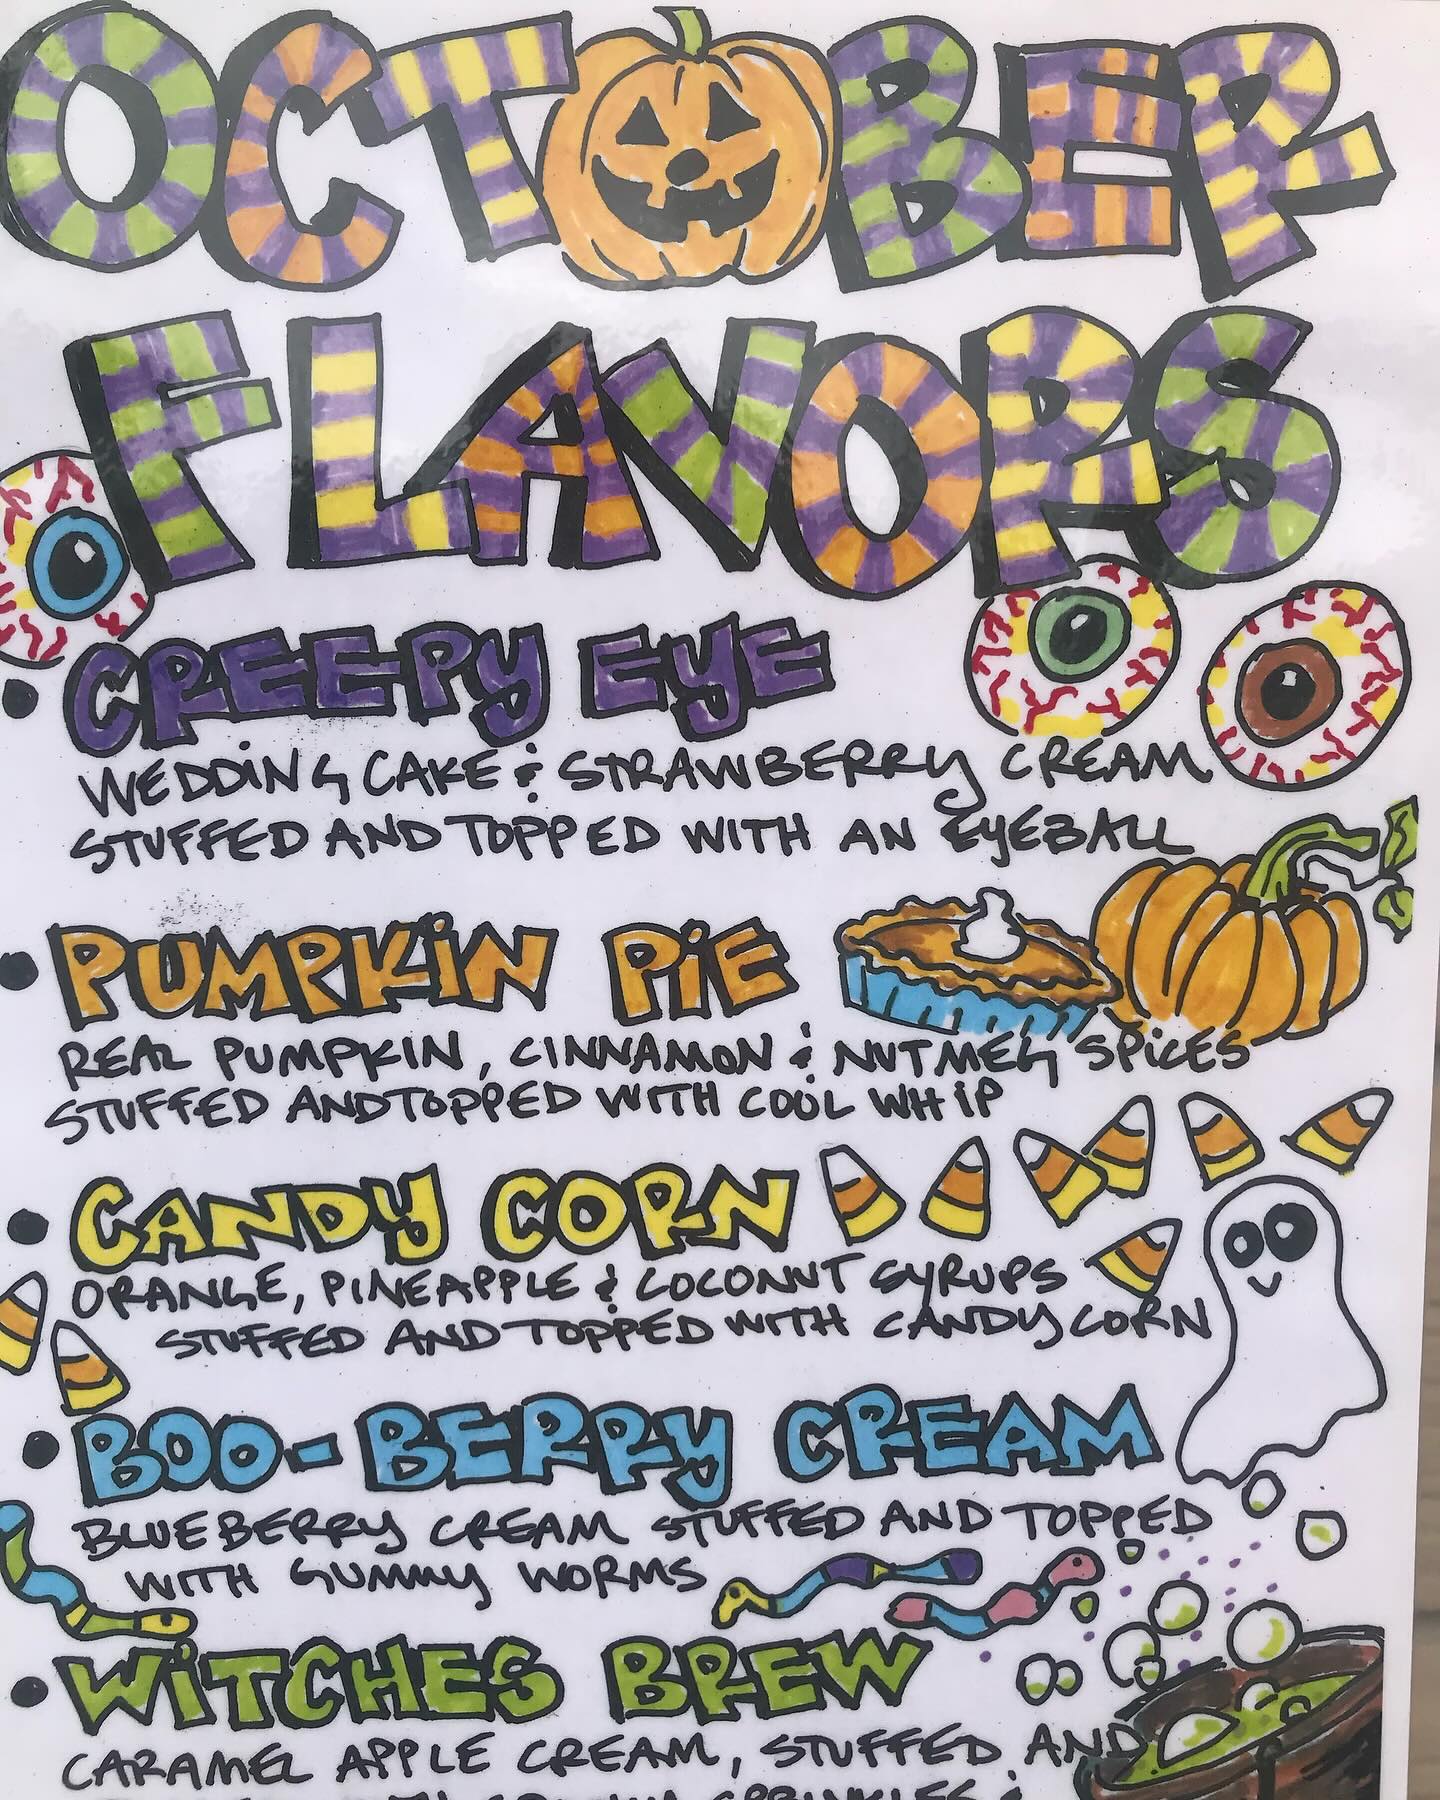 OCTOBER
FLAVORS
• CREEPY EYE
WEDDING CAKE & STRAWBERRY CREAM
STUFFED AND TOPPED WITH AN EYEBALL
• PUMPKIN PIE
REAL PUMPKIN, CINNAMON & NUTMEG SPICES
STUFFED AND TOPPED WITH COOL WHIP
• CANDY CORN
ORANGE, PINEAPPLE & COCONUT SYRUPS
STUFFED AND TOPPED WITH CANDY CORN
• BOO-BERRY CREAM
BLUEBERRY CREAM STUFFED AND TOPPED
WITH GUMMY WORMS
• WITCHES BREW
CARAMEL APPLE CREAM, STUFFED AND
SPRINKLES &